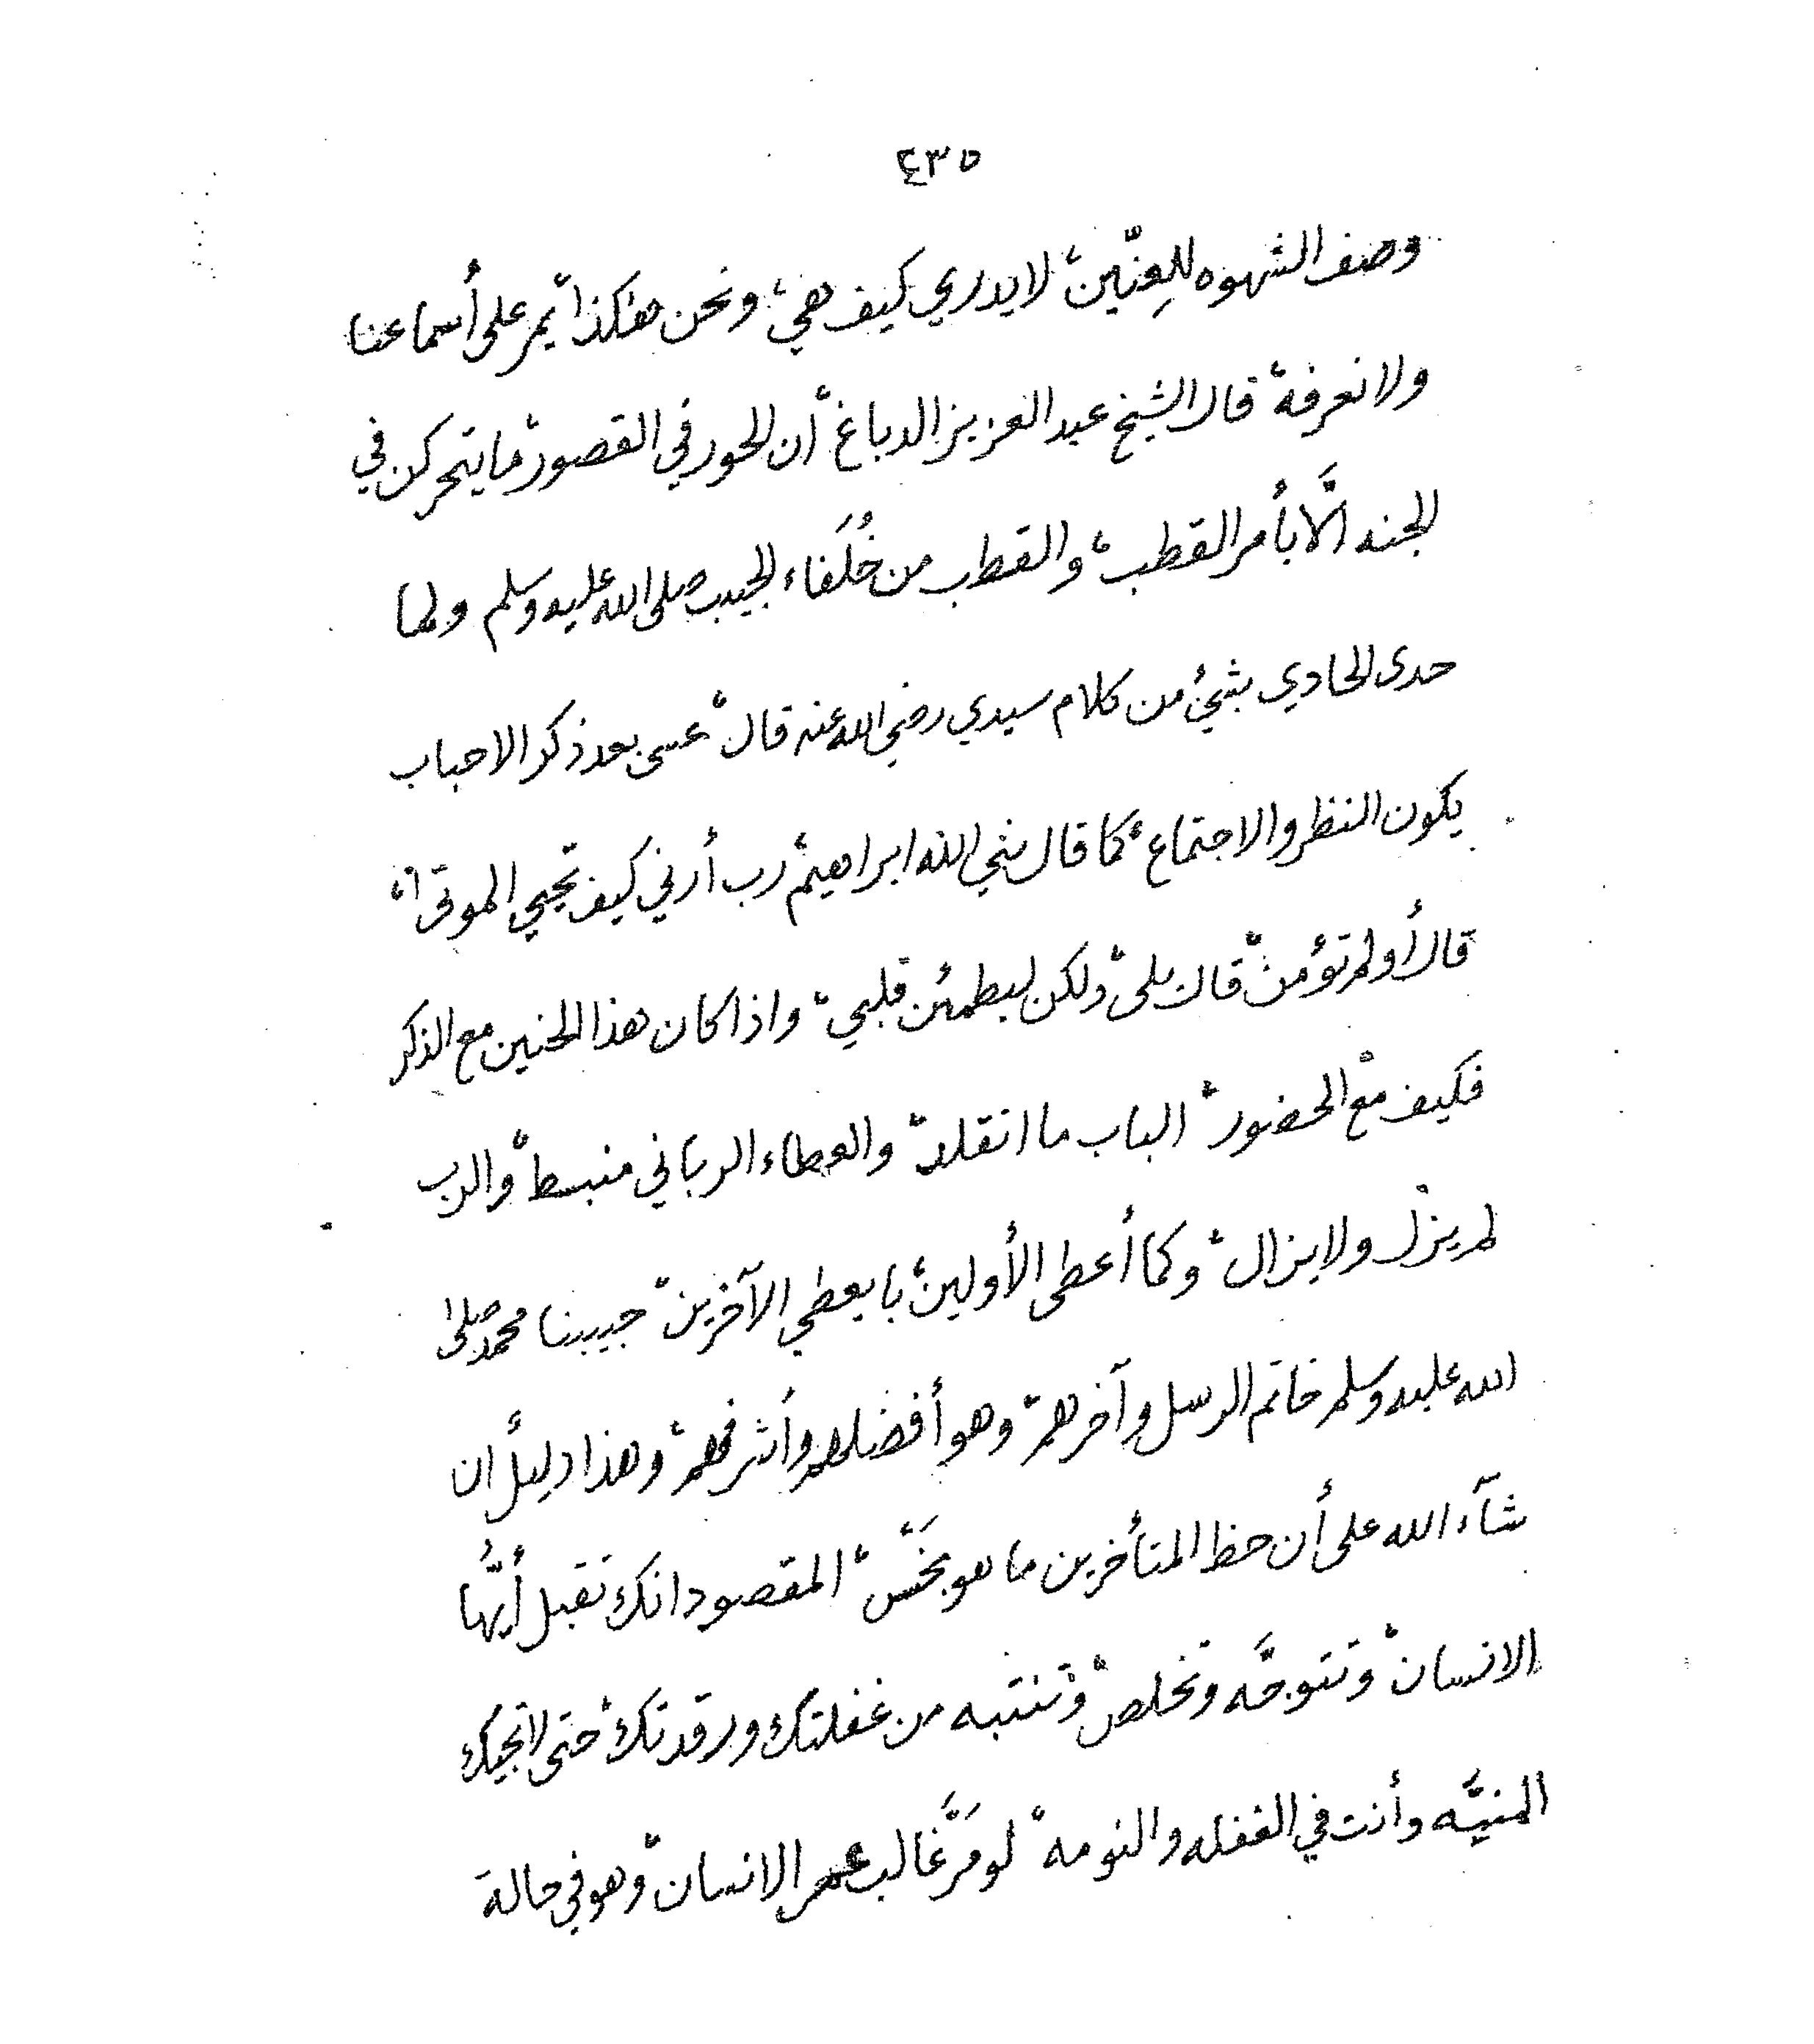 ٤٣٥
وصف الشهوه للعِنّين، لا يدري كيف هي، ونحن هكذا يمر على أسماعنا
ولا نعرفه، قال الشيخ عبد العزيز الدباغ، أن الحور في القصور، ما يتحركن في
الجنه الَّا بأمر القطب، والقطب من خُلَفاء الحبيب صلى الله عليه وسلم ولما
حدى الحادي بشيءٍ من كلام سيدي رضي الله عنه قال، عسى بعد ذكر الاحباب
يكون النظر والاجتماع، كما قال نبي الله ابراهيم، رب أرني كيف تحيي الموتى،
قال أولم تؤمن، قال بلى، ولكن ليطمئن قلبي، واذا كان هذا الحنين مع الذكر
فكيف مع الحضور، الباب ما انقلد، والعطاء الرباني منبسط، والرب
لم يزل ولا يزال، وكما أعطى الأولين، با يعطي الآخرين، حبيبنا محمد صلى
الله عليه وسلم خاتم الرسل وآخرهم، وهو أفضلهم وأشرفهم، وهذا دليل أن
شآء الله على أن حظ المتأخرين ما هو بَخْس، المقصود انك تقبل أيُّها
الانسان، وتتوجَّه وتخلص، وتنتبه من غفلتك ورقدتك، حتى لا تجيك
المنيَّه وأنت في الغفله والنومه، لو مَرَّ غالب عمر الانسان، وهو في حالة